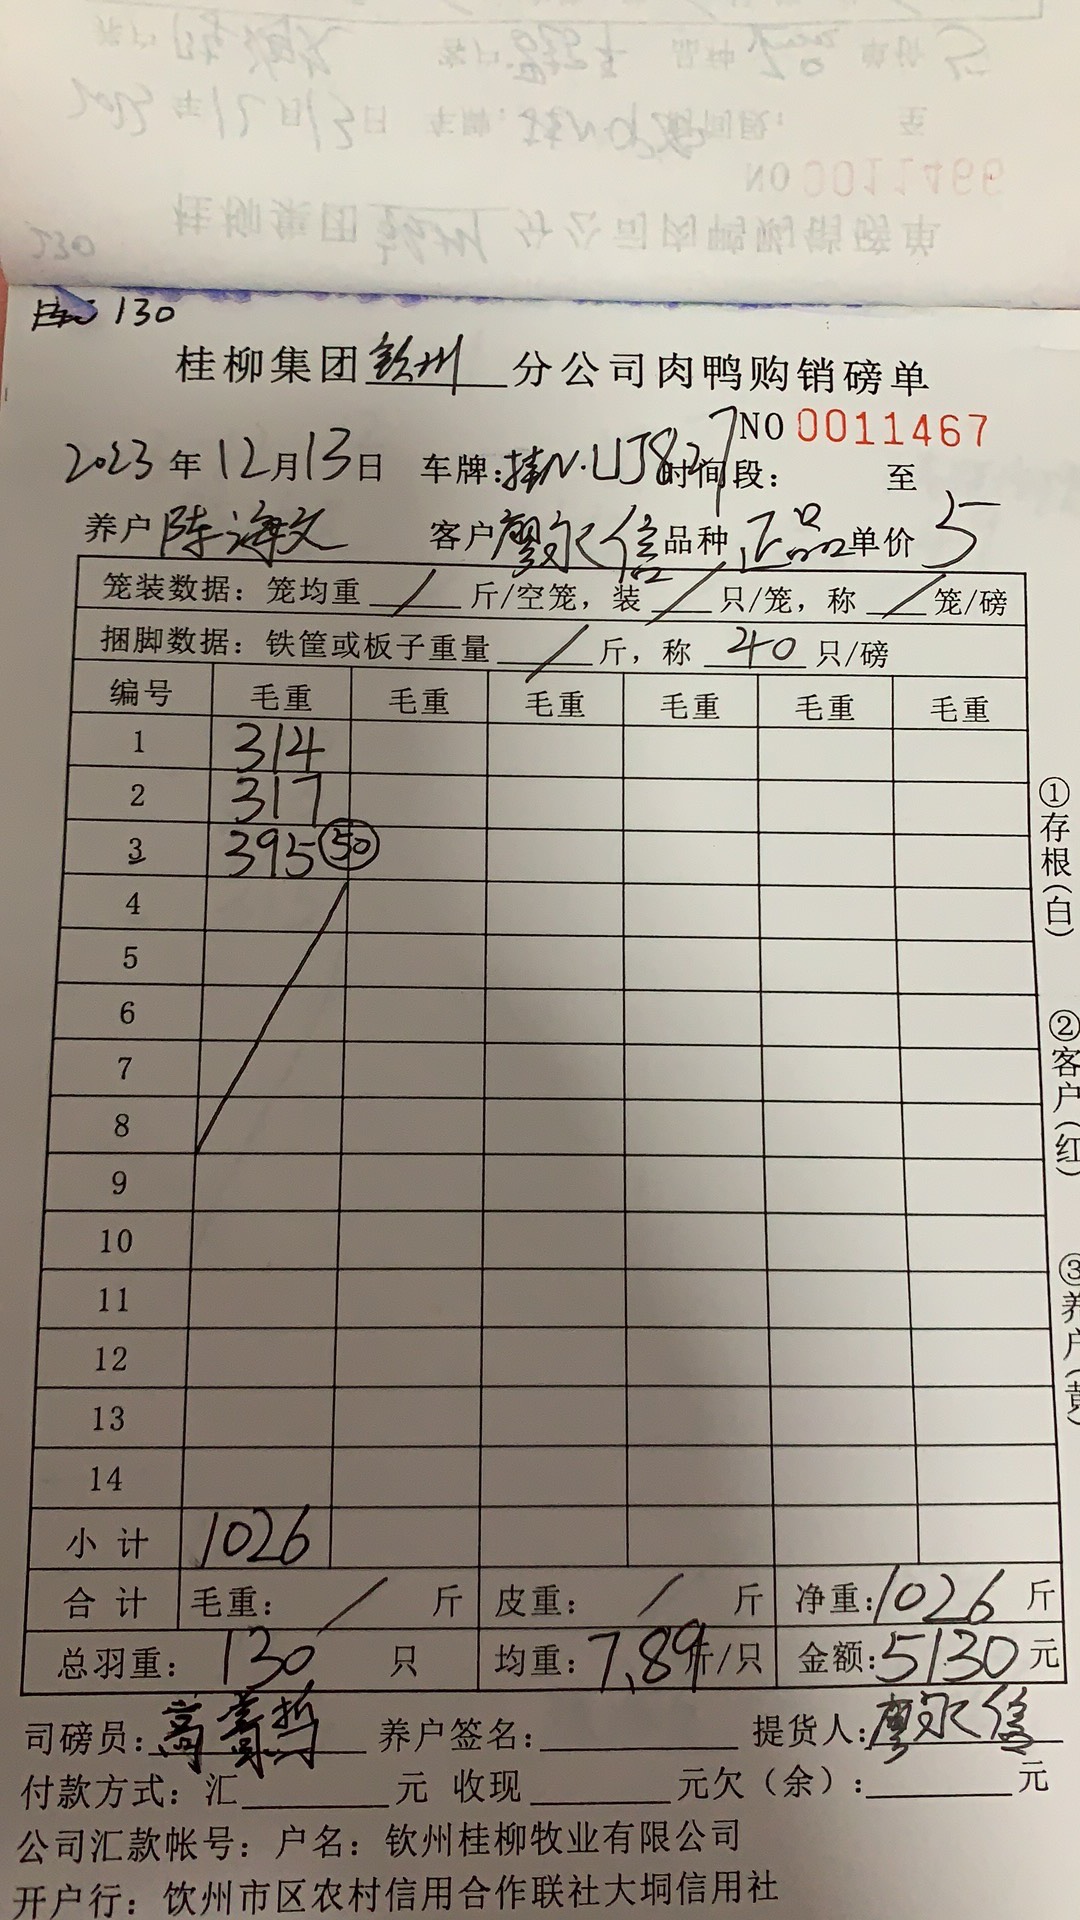 130
桂柳集团钦州分公司肉鸭购销磅单
NO 0011467
2023年12月13日 车牌:桂N·UJ827 时间段: 至
养户 陈海文 客户 廖永信 品种 正品 单价 5
笼装数据: 笼均重 / 斤/空笼, 装 / 只/笼, 称 / 笼/磅
捆脚数据: 铁筐或板子重量 / 斤, 称 40 只/磅
编号 毛重 毛重 毛重 毛重 毛重 毛重
1 314
2 317
3 395 50
4
5
6
7
8
9
10
11
12
13
14
小计 1026
合计 毛重: / 斤 皮重: / 斤 净重: 1026 斤
总羽重: 130 只 均重: 7.89 斤/只 金额: 5130 元
司磅员: 养户签名: 提货人: 廖永信
付款方式: 汇 元 收现 元欠(余): 元
公司汇款帐号: 户名: 钦州桂柳牧业有限公司
开户行: 钦州市区农村信用合作联社大垌信用社
①存根(白)
②客户(红)
③养户(黄)